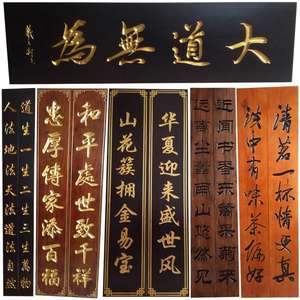 大道無為
道生一生二生三生萬物
人法地法天法道法自然
和平處世致千祥
忠厚傳家添百福
华夏迎来盛世风
山花簇拥金易宝
近闻书香
山悠然见
清茗一杯情更真
淡中有味茶偏好